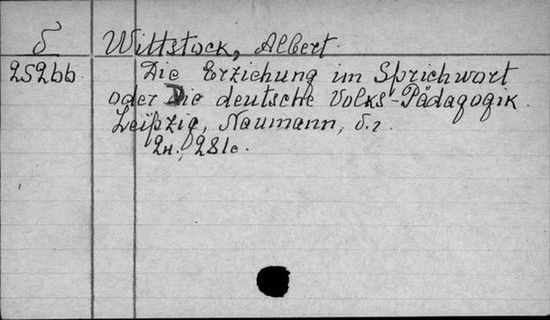 б Wittstock, Albert.
25266 Die Erziehung im Sprichwort
oder Die deutsche Volks-Pädagogik.
Leipzig, Naumann, б.г.
2н., 281с.